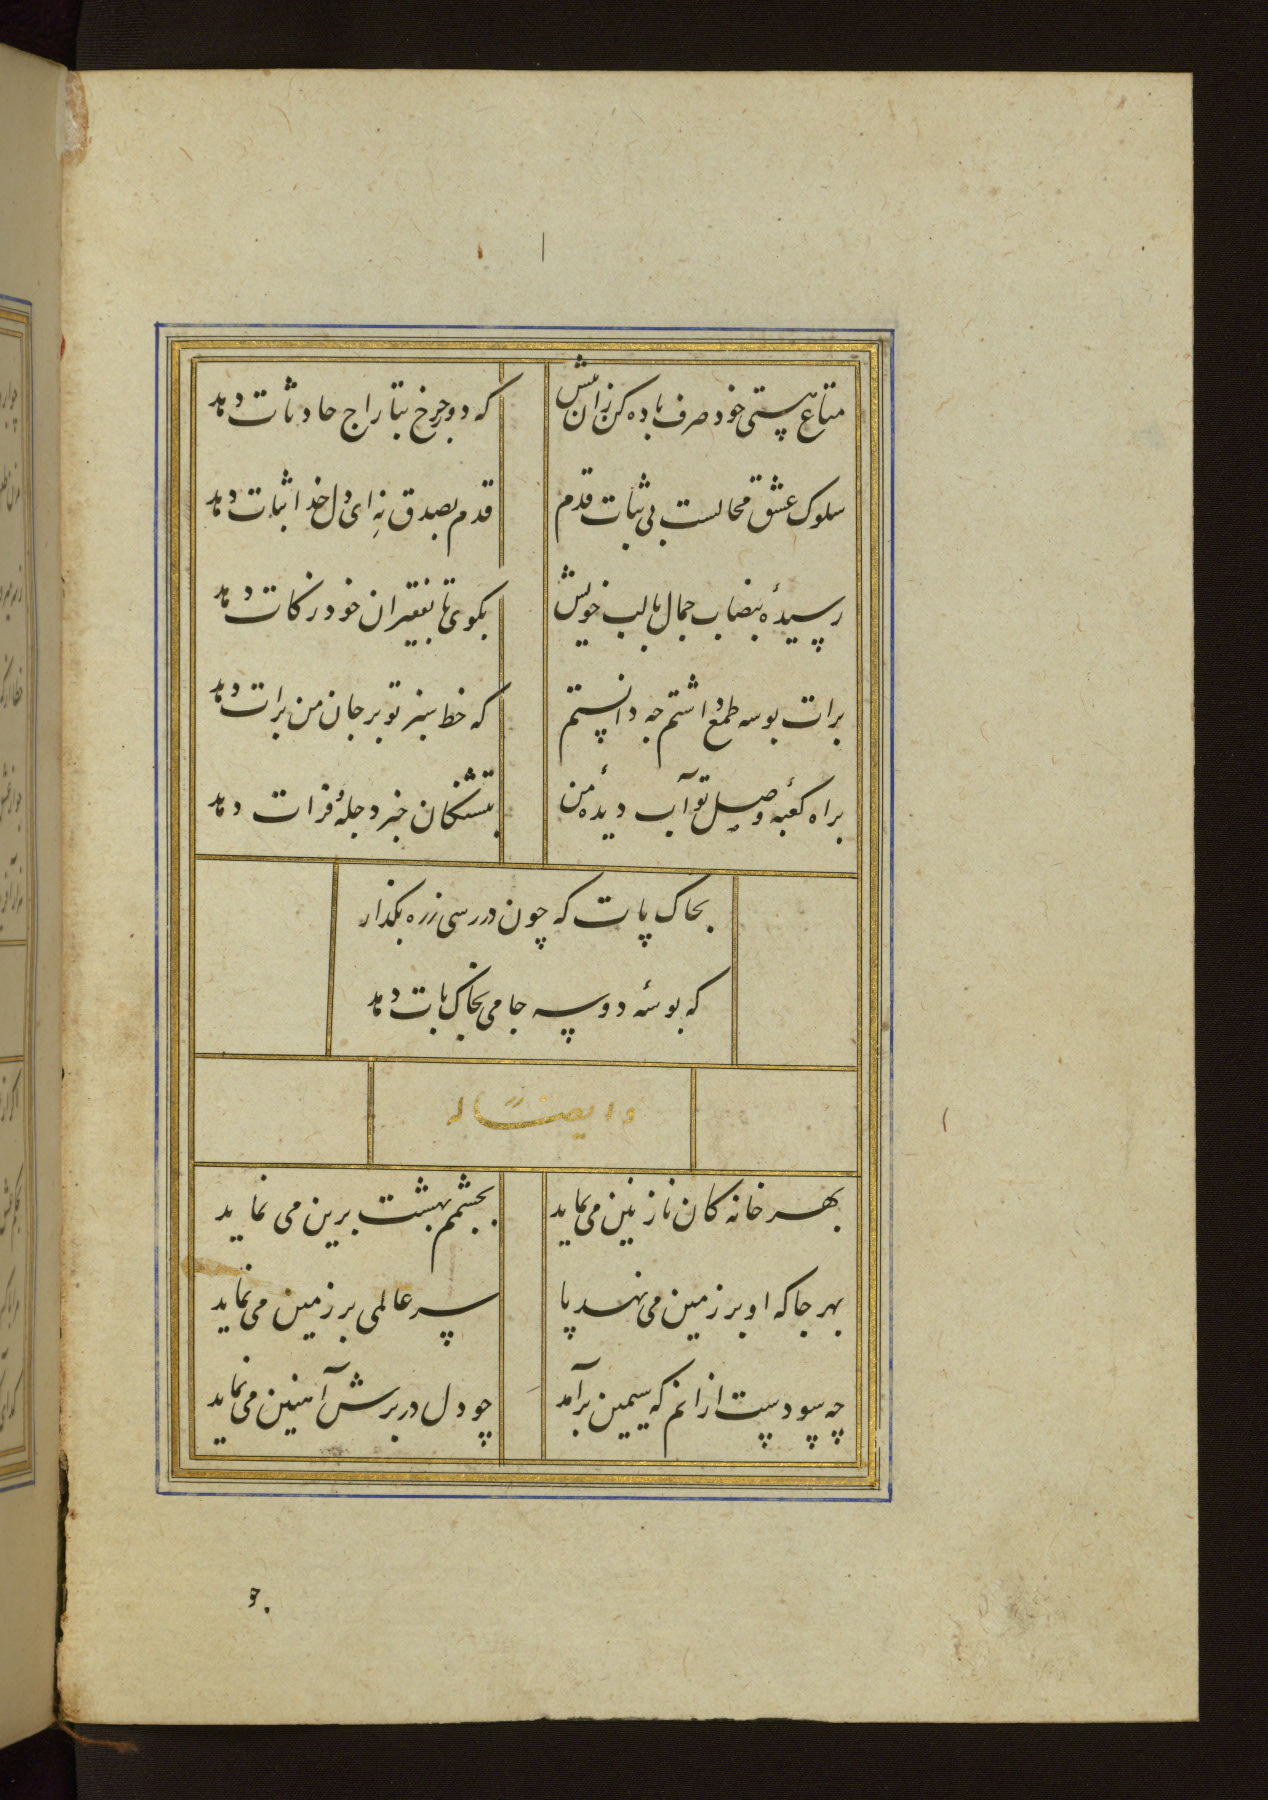 متاع هستی خود صرف باده کن زان پیش
که دور چرخ بتاراج حادثات دهد
سلوک عشق محالست بی ثبات قدم
قدم بصدق نِه ای دل خدا ثبات دهد
رسیدهٔ بنصاب جمال با لب خویش
بگوی تا بفقیران خود زکات دهد
برات بوسه طمع داشتم چه دانستم
که خط سبز تو بر جان من برات دهد
براه کعبهٔ وصل تو آب دیدهٔ من
بتشنگان خبر دجلهٔ فرات دهد
بخاک پات که چون در رسی ز ره بگذار
که بوسهٔ دو سه جامی بخاک پات دهد
و ایضاً له
بهر خانه کان نازنین می نماید
بچشمم بهشت برین می نماید
بهر جا که او بر زمین می نهد پا
سر عالمی بر زمین می نماید
چه سودست ازانم که سیمین برآمد
چو دل در برش آهنین می نماید